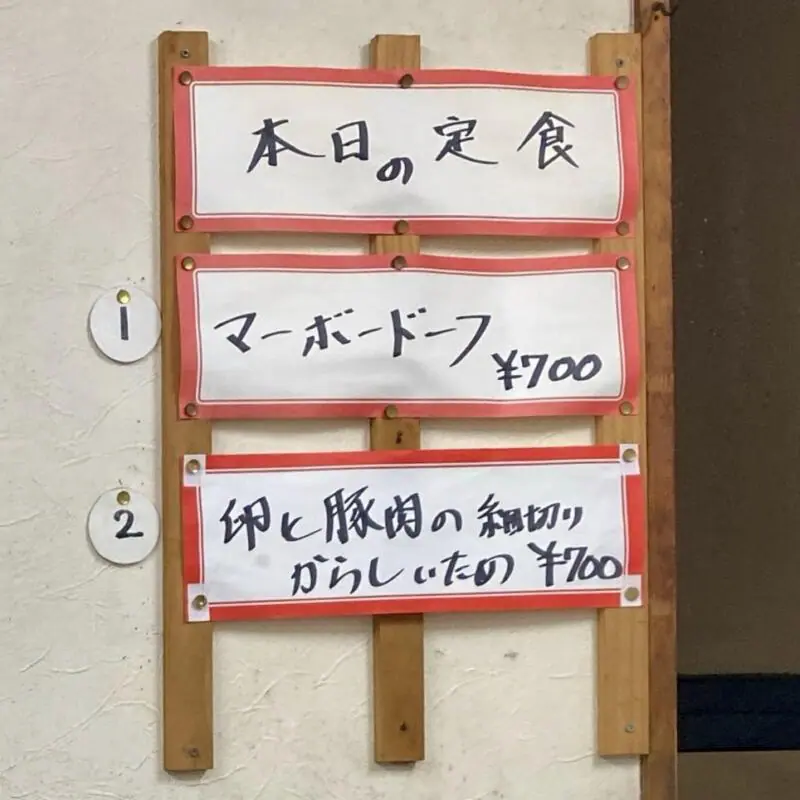 本日の定食
1
マーボードーフ
¥700
2
卵と豚肉の細切り
からしいため ¥700